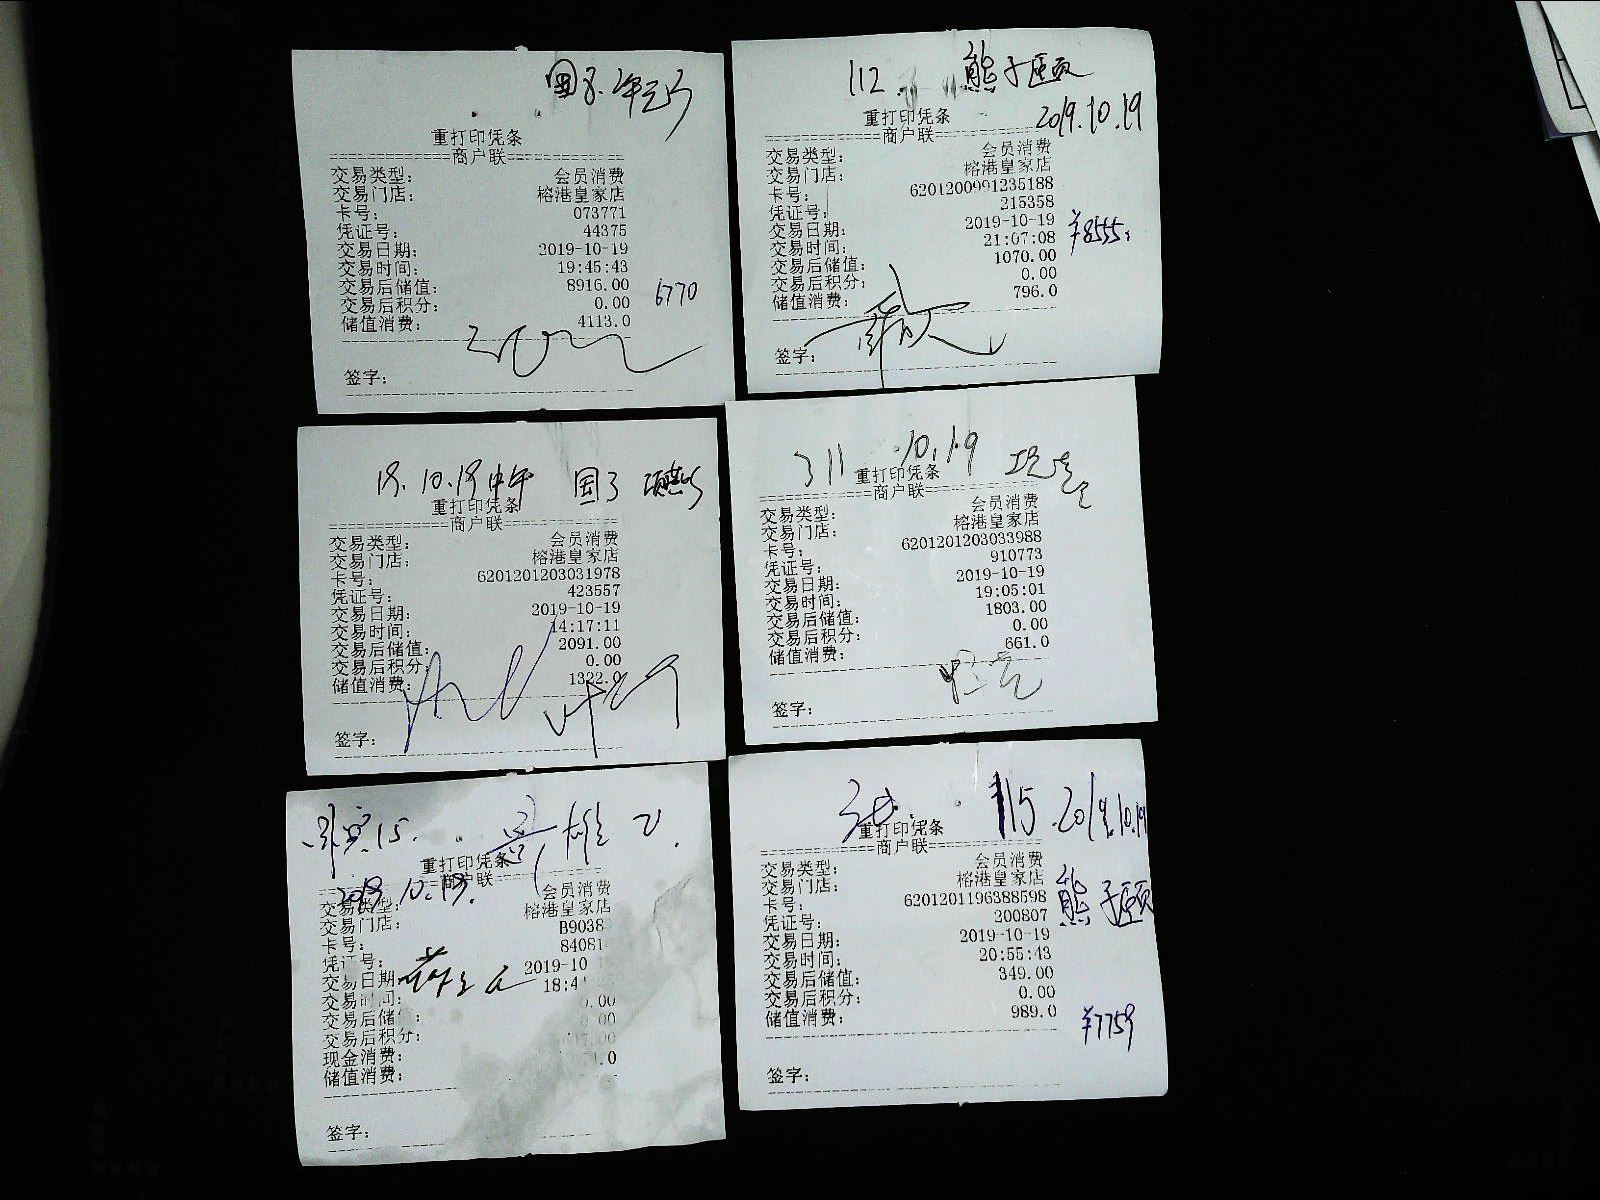 重打印凭条
============商户联============
交易类型: 会员消费
交易门店: 榕港皇家店
卡号: 073771
凭证号: 44375
交易日期: 2019-10-19
交易时间: 19:45:43
交易后储值: 8916.00
交易后积分: 0.00
6770
储值消费: 4113.0
签字:
112. 熊子颐
2019.10.19
重打印凭条
============商户联============
交易类型: 会员消费
交易门店: 榕港皇家店
卡号: 6201200991235188
凭证号: 215358
交易日期: 2019-10-19
¥8555
交易时间: 21:07:08
交易后储值: 1070.00
交易后积分: 0.00
储值消费: 796.0
签字:
19.10.19中午 国3
重打印凭条
============商户联============
交易类型: 会员消费
交易门店: 榕港皇家店
卡号: 6201201203031978
凭证号: 423557
交易日期: 2019-10-19
交易时间: 14:17:11
交易后储值: 2091.00
交易后积分: 0.00
储值消费: 1322.0
签字:
311 10.19
重打印凭条
============商户联============
交易类型: 会员消费
交易门店: 榕港皇家店
卡号: 6201201203033988
凭证号: 910773
交易日期: 2019-10-19
交易时间: 19:05:01
交易后储值: 1803.00
交易后积分: 0.00
储值消费: 661.0
签字:
重打印凭条
商户联
2019.10.19.
交易类型: 会员消费
交易门店: 榕港皇家店
卡号: B9038
凭证号: 84081
交易日期: 2019-10
交易时间: 18:4
交易后储值: 0.00
交易后积分: 0.00
现金消费:
储值消费: .0
签字:
115 2019.10.19
重打印凭条
============商户联============
交易类型: 会员消费
交易门店: 榕港皇家店
卡号: 6201201196388598
熊子颐
凭证号: 200807
交易日期: 2019-10-19
交易时间: 20:55:43
交易后储值: 349.00
交易后积分: 0.00
储值消费: 989.0
¥7759
签字: